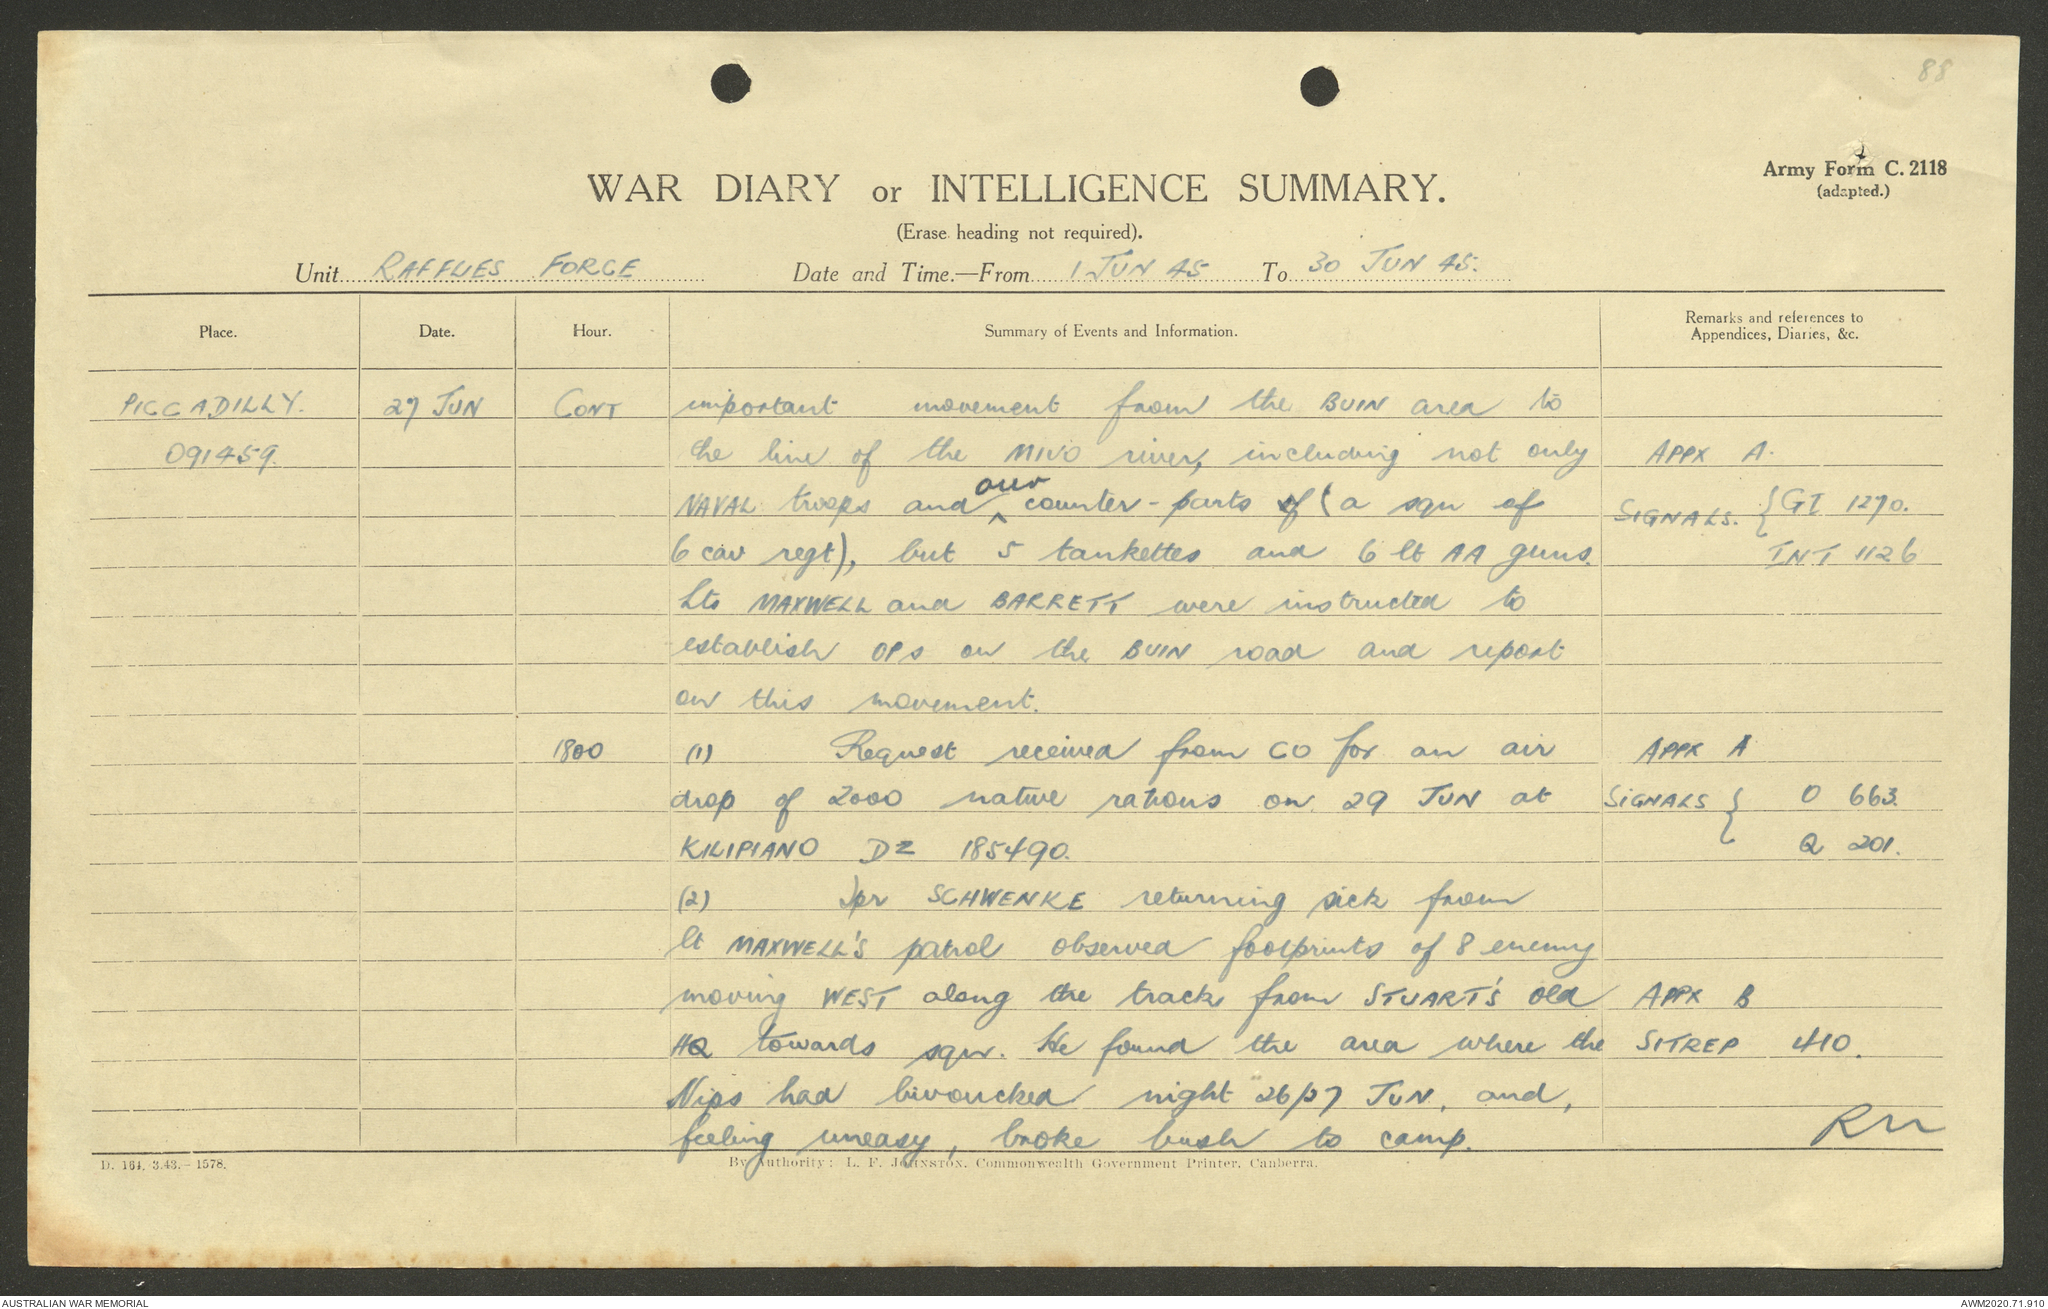 88
Army Form C. 2118
(adapted.)
WAR DIARY or INTELLIGENCE SUMMARY.
(Erase heading not required).
Unit RAFFLES FORCE Date and Time.—From 1 JUN 45 To 30 JUN 45.
Place. Date. Hour. Summary of Events and Information. Remarks and references to Appendices, Diaries, &c.
PICCADILLY. 27 JUN CONT important movement from the BUIN area to
091459. the line of the MIVO river, including not only APPX A.
NAVAL troops and our counter-parts of (a sqn of SIGNALS. { GI 1270.
6 cav regt), but 5 tankettes and 6 lt AA guns. INT 1126
Lts MAXWELL and BARRETT were instructed to
establish OPs on the BUIN road and report
on this movement.
1800 (1) Request received from CO for an air APPX A
drop of 2000 native rations on 29 JUN at SIGNALS { O 663.
KILIPIANO DZ 185490. Q 201.
(2) Tpr SCHWENKE returning sick from
lt MAXWELL'S patrol observed footprints of 8 enemy
moving WEST along the track from STUART'S old APPX B
HQ towards sqn. He found the area where the SITREP 410.
Nips had bivoucked night 26/27 JUN, and,
feeling uneasy, broke bush to camp.
D. 164, 3.43.—1578. By Authority: L. F. Johnston, Commonwealth Government Printer, Canberra.
AUSTRALIAN WAR MEMORIAL AWM2020.71.910